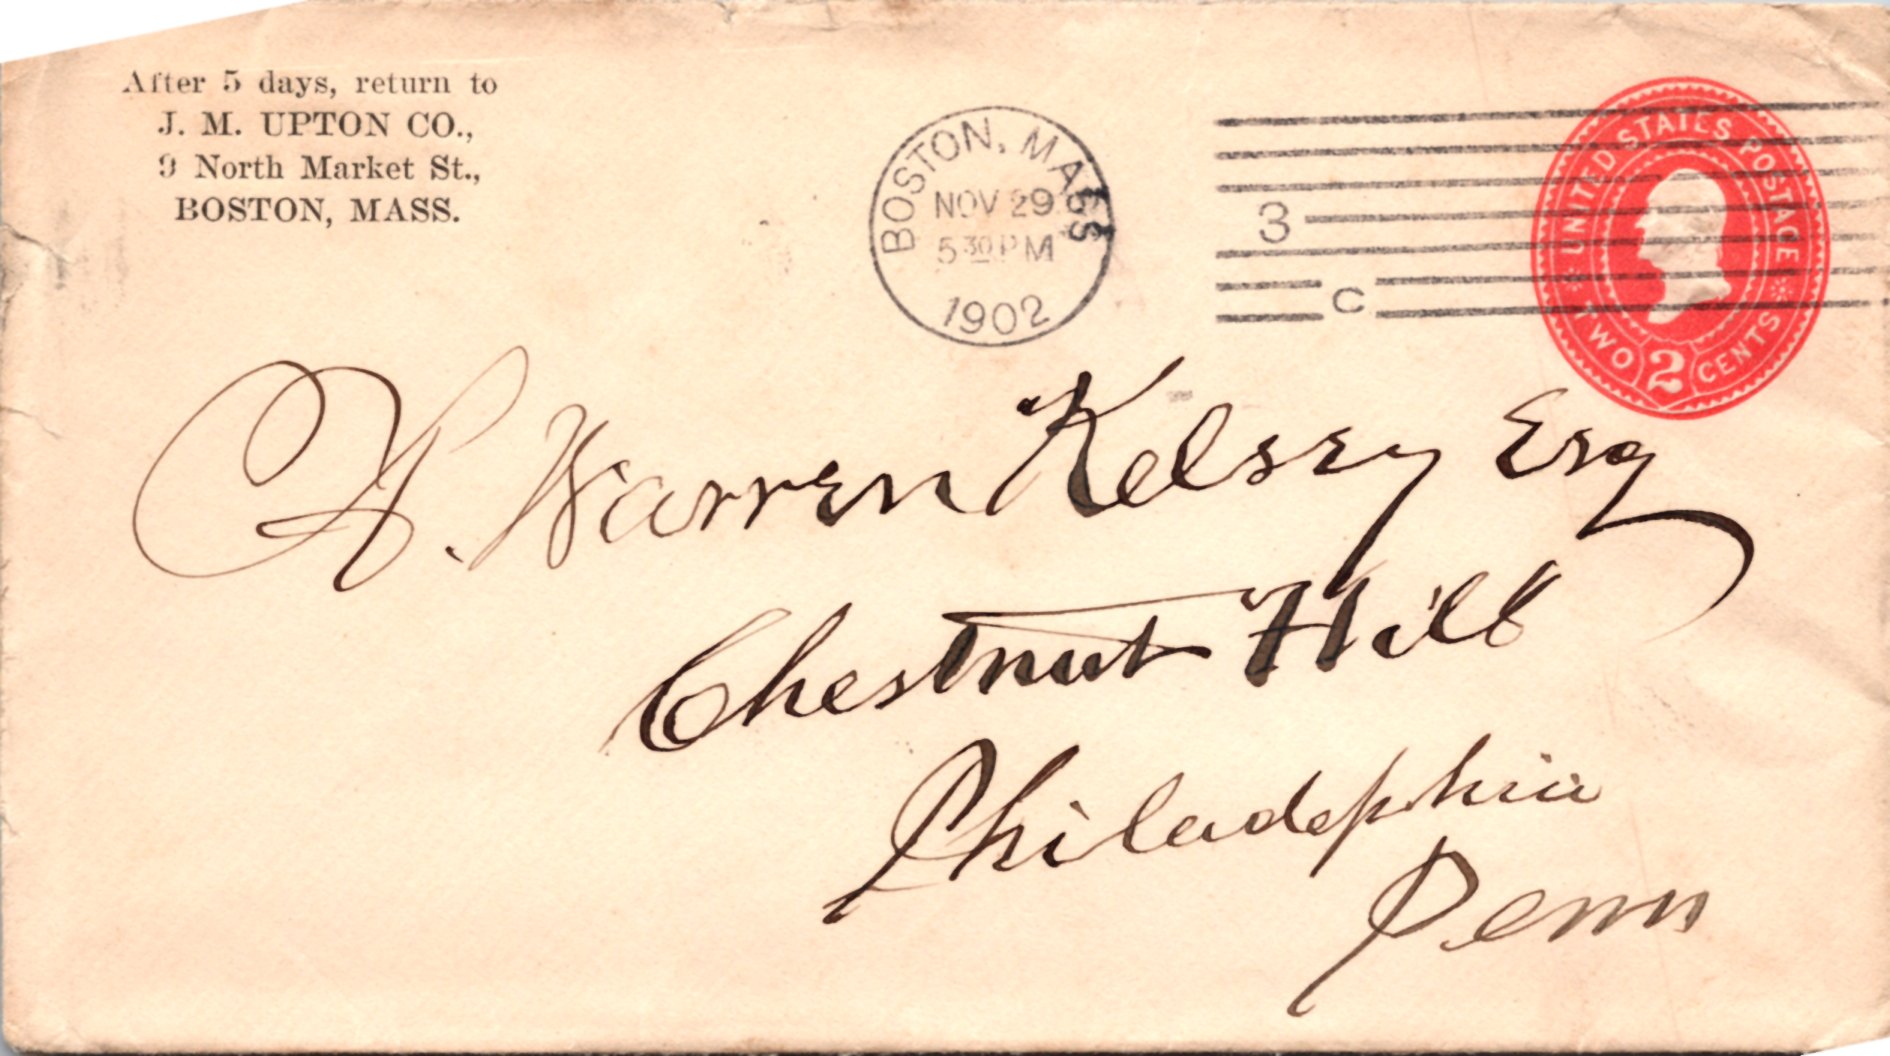 After 5 days, return to
J. M. UPTON CO.,
9 North Market St.,
BOSTON, MASS.
BOSTON, MASS
NOV 29
5 30 PM
1902
3
C
UNITED STATES POSTAGE
TWO 2 CENTS
A. Warren Kelsey Esq
Chestnut Hill
Philadephia
Penn